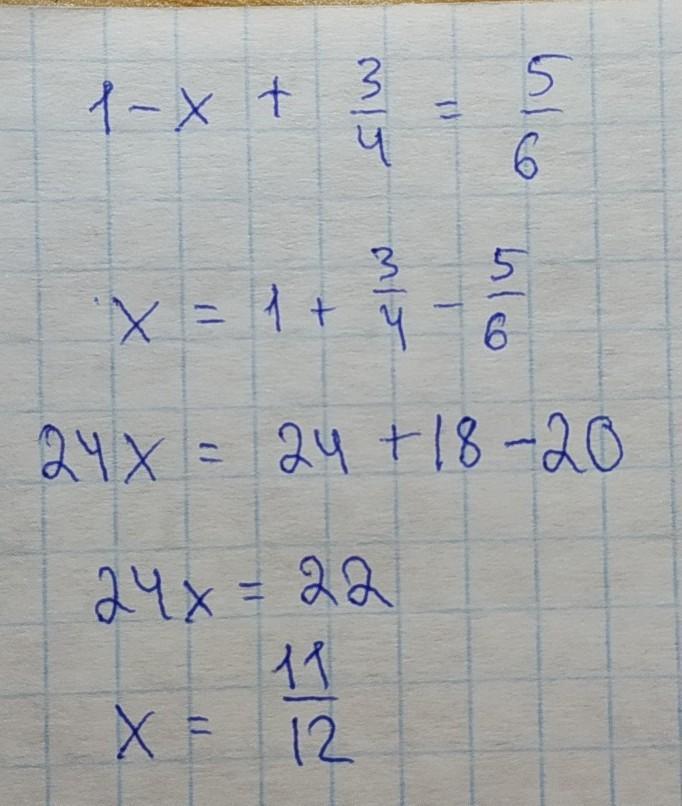 1 - x + 3/4 = 5/6
x = 1 + 3/4 - 5/6
24x = 24 + 18 - 20
24x = 22
x = 11/12